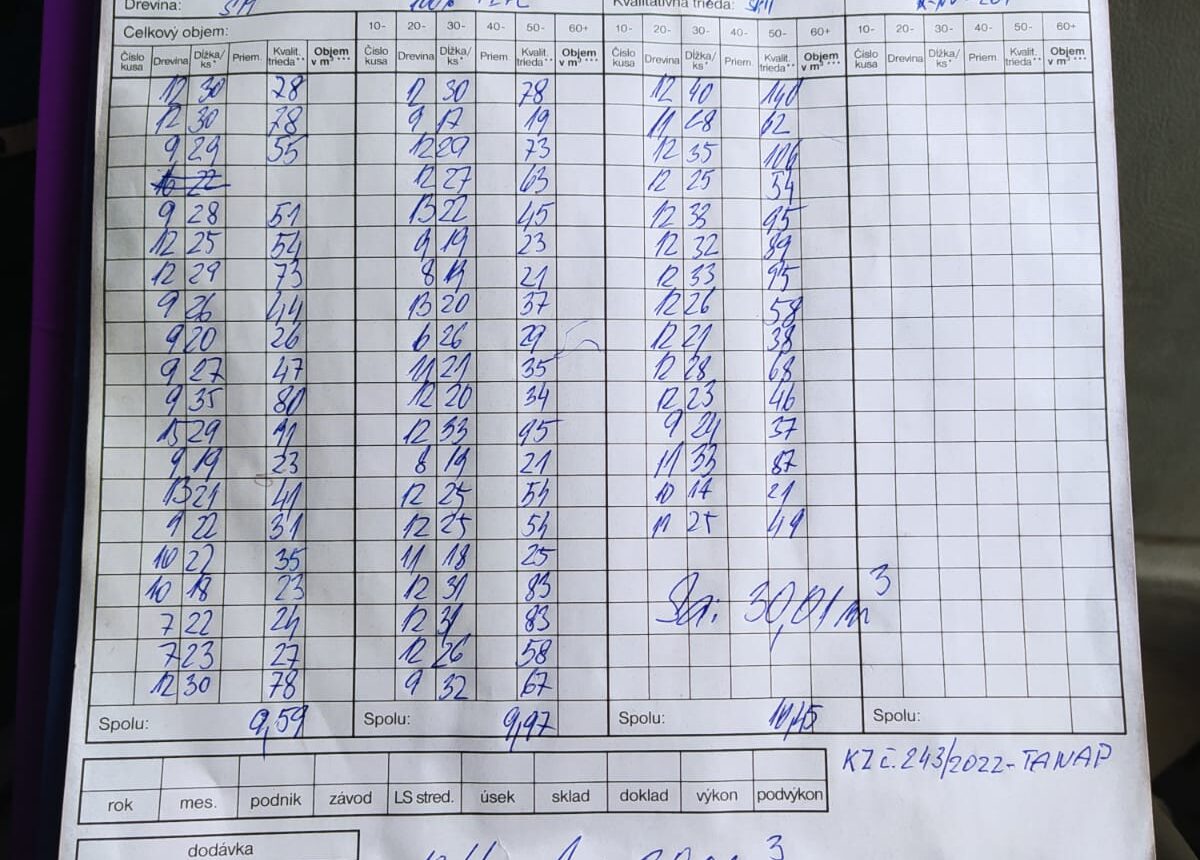 Drevina: SM Kvalitatívna trieda:
Celkový objem: 10- 20- 30- 40- 50- 60+ 10- 20- 30- 40- 50- 60+ 10- 20- 30- 40- 50- 60+
Číslo kusa Drevina Dĺžka/ks* Priem. Kvalit. trieda** Objem v m³*** Číslo kusa Drevina Dĺžka/ks* Priem. Kvalit. trieda** Objem v m³*** Číslo kusa Drevina Dĺžka/ks* Priem. Kvalit. trieda** Objem v m³*** Číslo kusa Drevina Dĺžka/ks* Priem. Kvalit. trieda** Objem v m³***
12 30 78 12 30 78 12 40 140
12 30 78 9 17 19 11 28 62
9 29 55 12 29 73 12 35 106
22 12 27 63 12 25 54
9 28 51 13 22 45 12 33 95
12 25 54 9 19 23 12 32 89
12 29 73 8 19 21 12 33 95
9 26 44 13 20 37 12 26 58
9 20 26 6 26 29 12 21 38
9 27 47 11 21 35 12 28 68
9 35 80 12 20 34 12 23 46
15 29 91 12 33 95 9 24 37
9 19 23 8 19 21 11 33 87
13 21 41 12 25 54 10 17 21
9 22 31 12 25 54 11 25 49
10 22 35 11 18 25
10 18 23 12 31 83
7 22 24 12 31 83 Sa: 30,01 m³
7 23 27 12 26 58
12 30 78 9 32 67
Spolu: 9,59 Spolu: 9,97 Spolu: 10,45 Spolu:
KZ č. 243/2022-TANAP
rok mes. podnik závod LS stred. úsek sklad doklad výkon podvýkon
dodávka